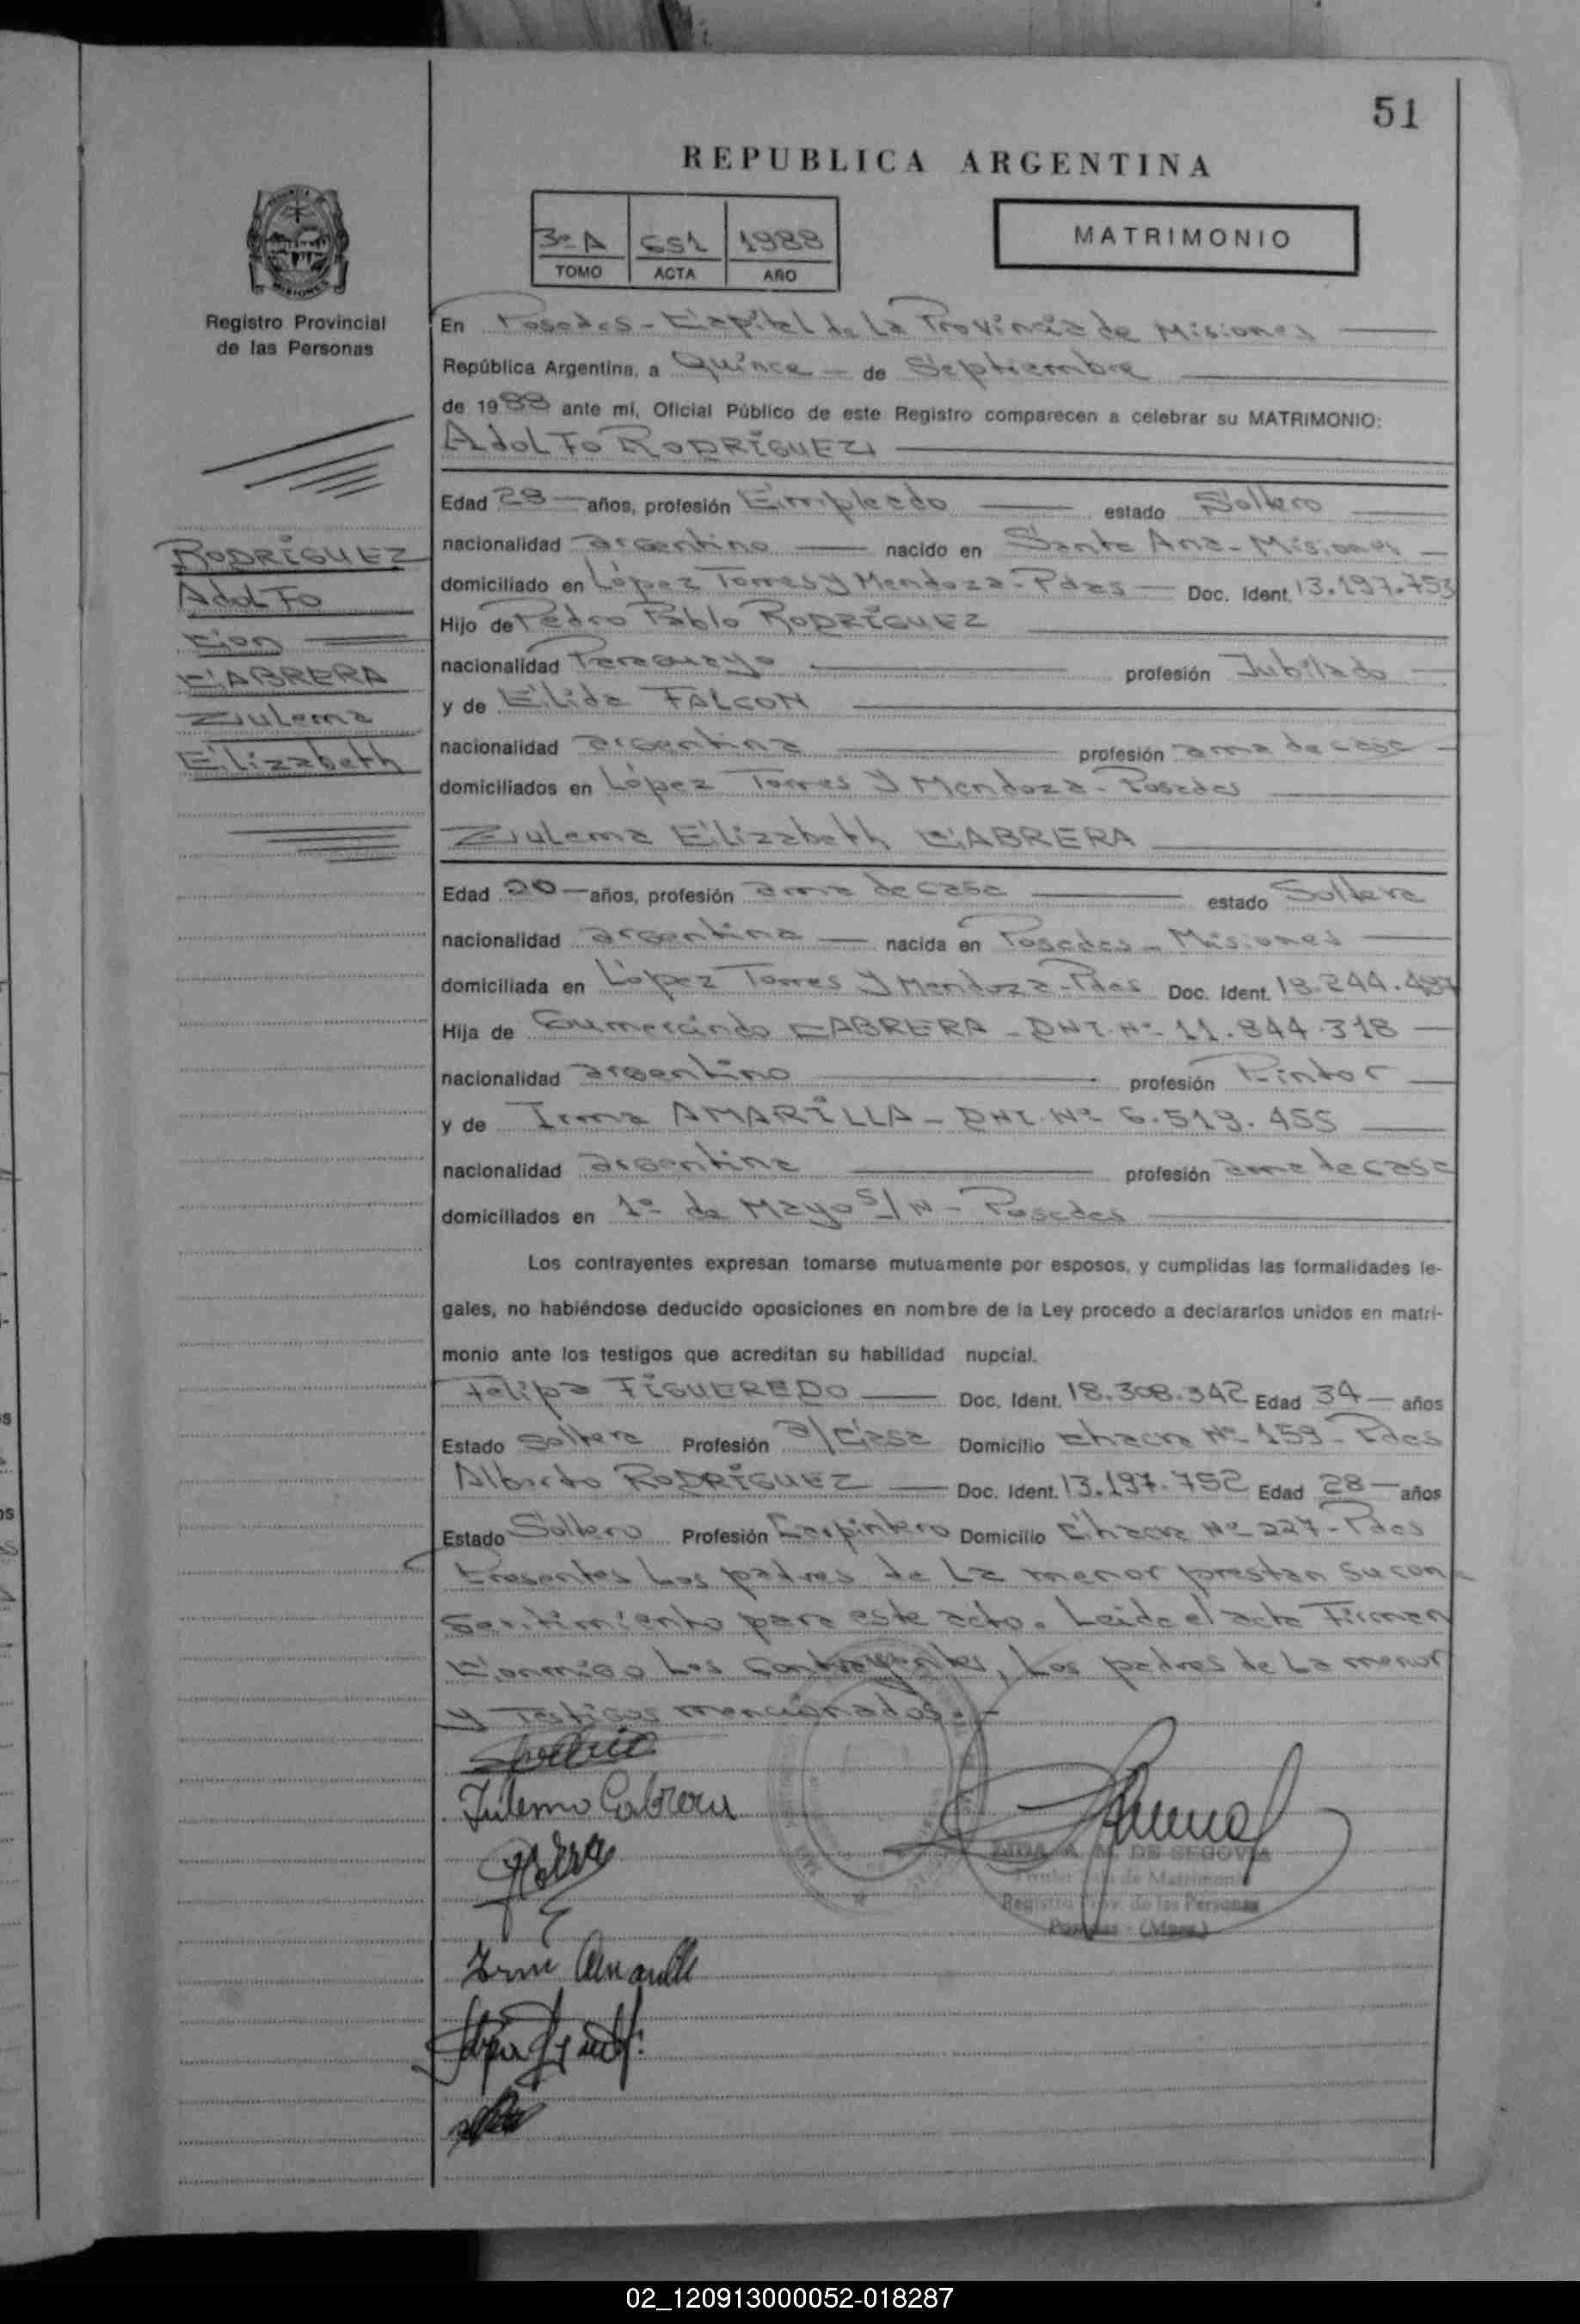 51
REPUBLICA ARGENTINA
3º A 651 1988
TOMO ACTA AÑO
MATRIMONIO
Registro Provincial
de las Personas
En Posadas - Capital de la Provincia de Misiones
República Argentina, a Quince de Septiembre
de 1988 ante mí, Oficial Público de este Registro comparecen a celebrar su MATRIMONIO:
Adolfo RODRÍGUEZ
RODRÍGUEZ
Adolfo
con
CABRERA
Zulema
Elizabeth
Edad 28 años, profesión Empleado estado Soltero
nacionalidad argentino nacido en Santa Ana - Misiones
domiciliado en López Torres y Mendoza - Pdas Doc. Ident. 13.197.753
Hijo de Pedro Pablo RODRÍGUEZ
nacionalidad Paraguayo profesión Jubilado
y de Elida FALCON
nacionalidad argentina profesión ama de casa
domiciliados en López Torres y Mendoza - Posadas
Zulema Elizabeth CABRERA
Edad 20 años, profesión ama de casa estado Soltera
nacionalidad argentina nacida en Posadas - Misiones
domiciliada en López Torres y Mendoza - Pdas Doc. Ident. 18.244.487
Hija de Gumercindo CABRERA - DNI. Nº 11.844.318
nacionalidad argentino profesión Pintor
y de Irma AMARILLA - DNI. Nº 6.519.455
nacionalidad argentina profesión ama de casa
domiciliados en 1º de Mayo S/N - Posadas
Los contrayentes expresan tomarse mutuamente por esposos, y cumplidas las formalidades le-
gales, no habiéndose deducido oposiciones en nombre de la Ley procedo a declararlos unidos en matri-
monio ante los testigos que acreditan su habilidad nupcial.
Felipa FIGUEREDO Doc. Ident. 18.308.342 Edad 34 años
Estado Soltera Profesión a/Casa Domicilio Chacra Nº 159 - Pdas
Alberto RODRÍGUEZ Doc. Ident. 13.197.752 Edad 28 años
Estado Soltero Profesión Carpintero Domicilio Chacra Nº 227 - Pdas
Presentes los padres de la menor prestan su con-
sentimiento para este acto. Leida el acta Firman
Conmigo Los Contrayentes, Los padres de La menor
y Testigos mencionados.-
Zulema Cabrera
Irma Amarilla
A. M. DE SEGOVIA
Titular de Matrimonio
Registro Prov. de las Personas
Posadas - (Mnes.)
02_120913000052-018287